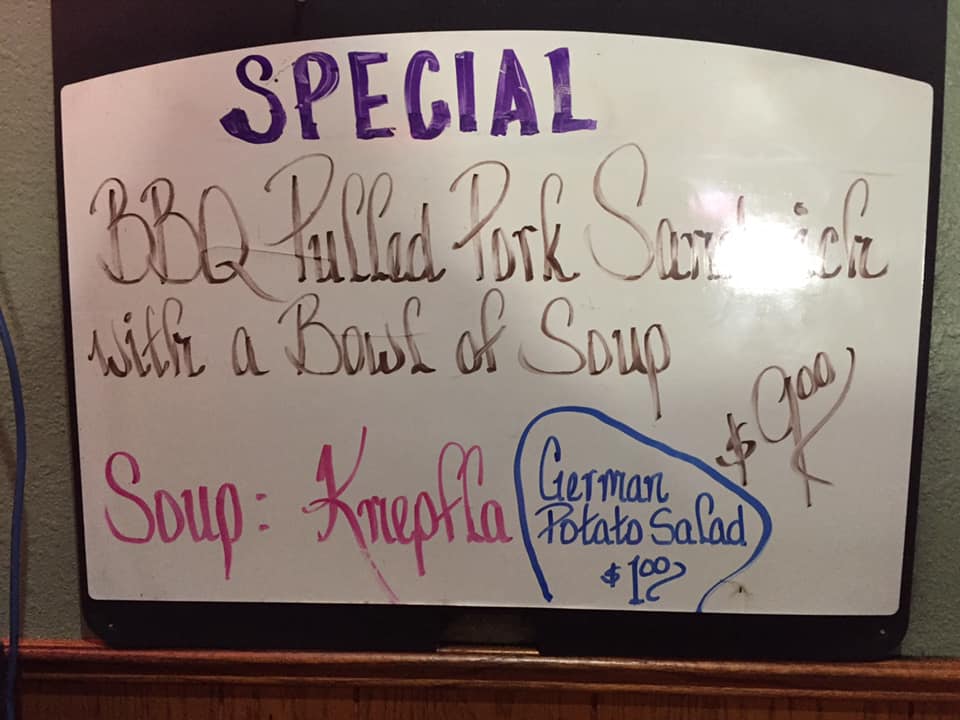 SPECIAL
BBQ Pulled Pork Sandwich
with a Bowl of Soup
$9.00
Soup: Knepfla
German
Potato Salad
$1.00